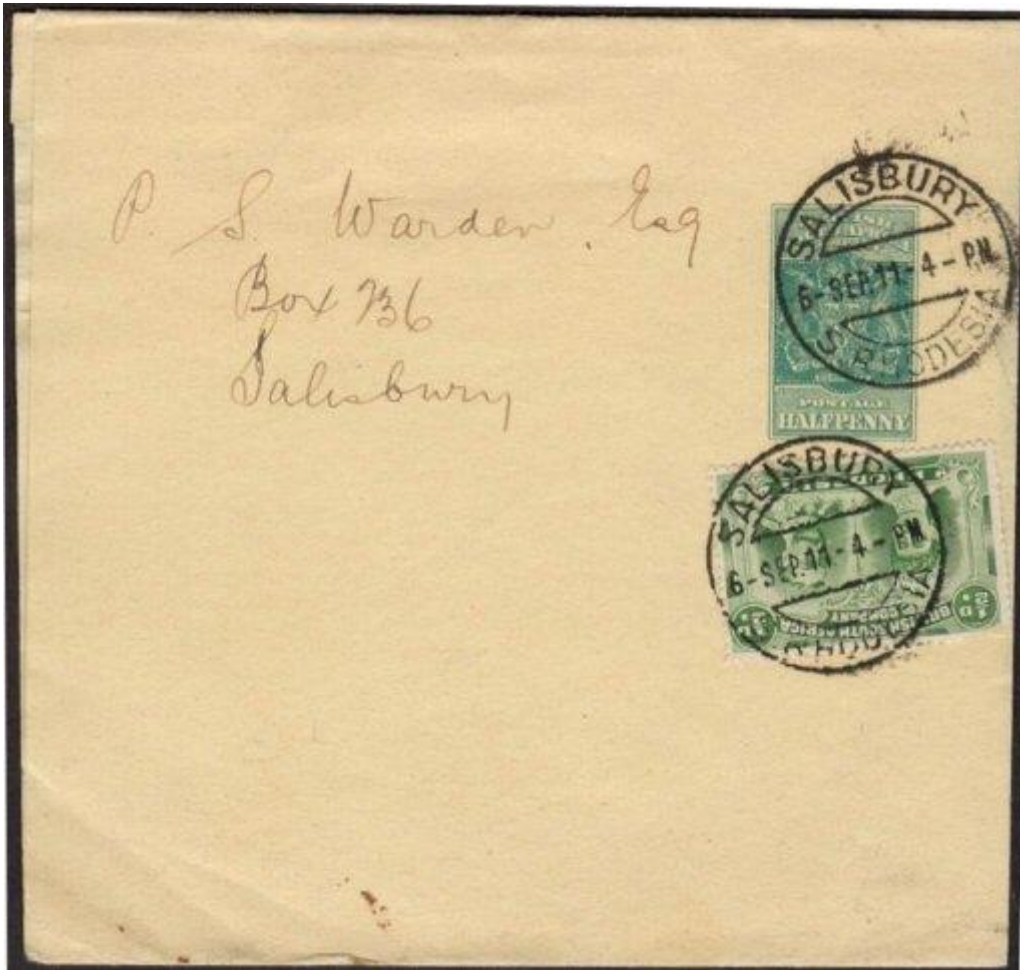 P. S. Warden. Esq
Box 736
Salisbury
SALISBURY
6-SEP.11-4-PM
S. RHODESIA
POSTAGE
HALFPENNY
SALISBURY
6-SEP.11-4-PM
RHODESIA
½D
BRITISH SOUTH AFRICA
COMPANY